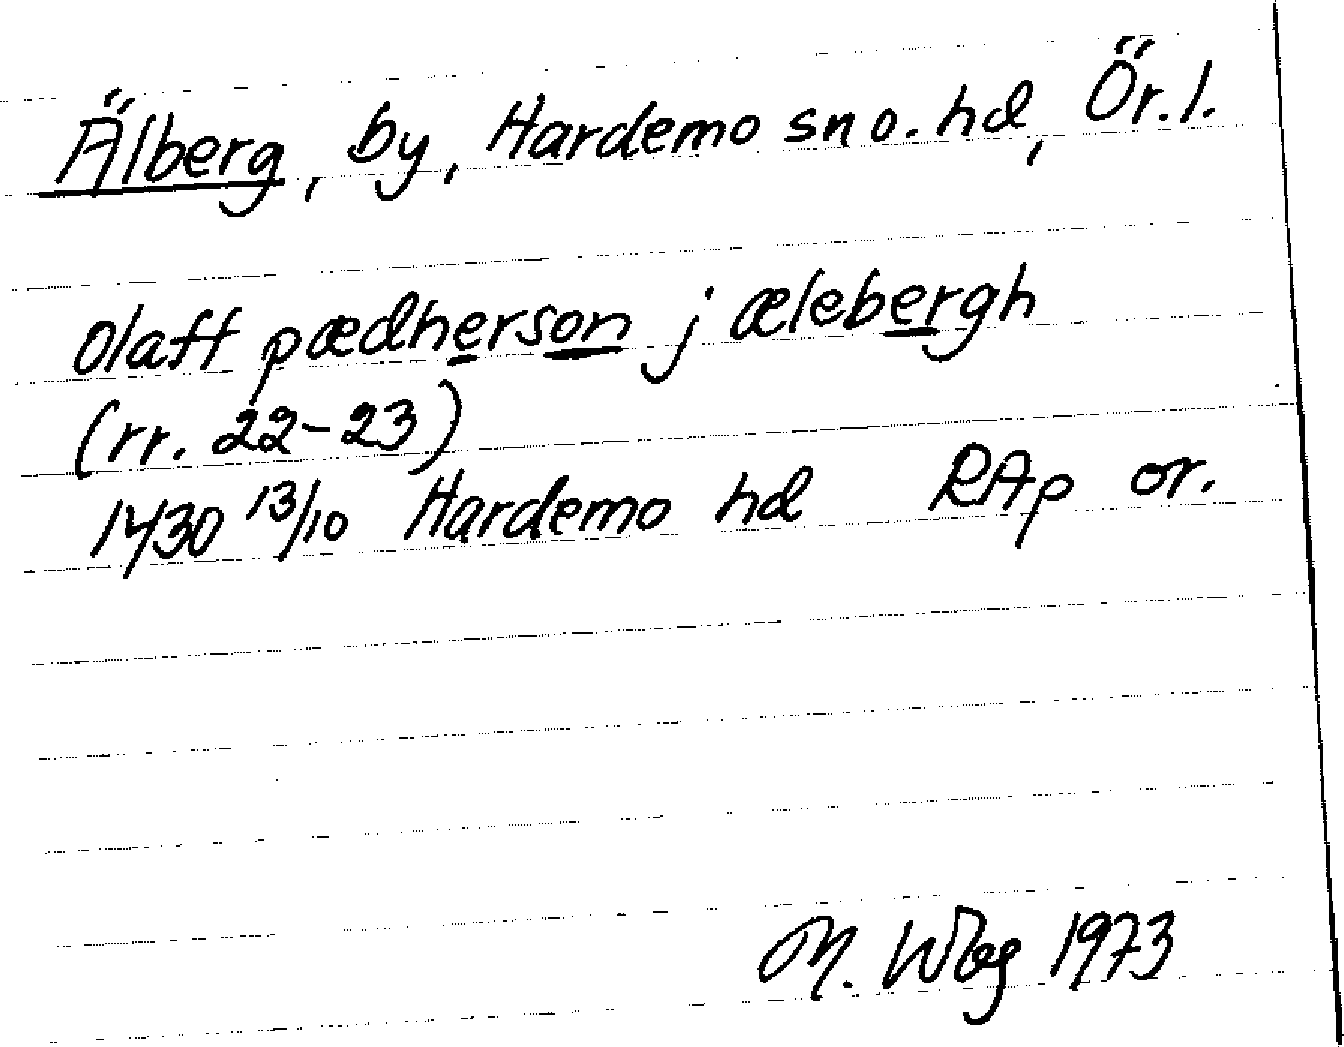 Älberg, by, Hardemo sn o. hd, Ör. l.
Olaff pædherson j ælebergh
(rr. 22-23)
1430 13/10 Hardemo hd RAp or.
M. Wbg 1973